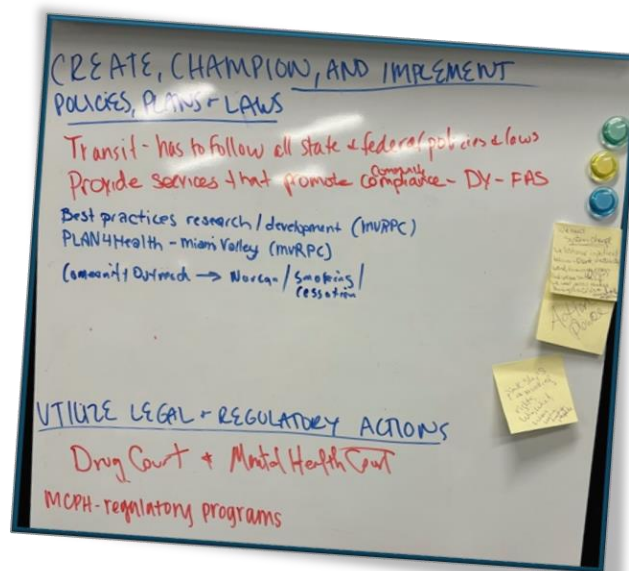 CREATE, CHAMPION, AND IMPLEMENT
POLICIES, PLANS + LAWS
Transit - has to follow all state & federal policies & laws
Community
Provide services that promote compliance - DY - FAS
Best practices research/development (MVRPC)
PLAN4Health - Miami Valley (MVRPC)
Community Outreach → Narcan / Smoking /
Cessation
UTILIZE LEGAL + REGULATORY ACTIONS
Drug Court & Mental Health Court
MCPH - regulatory programs